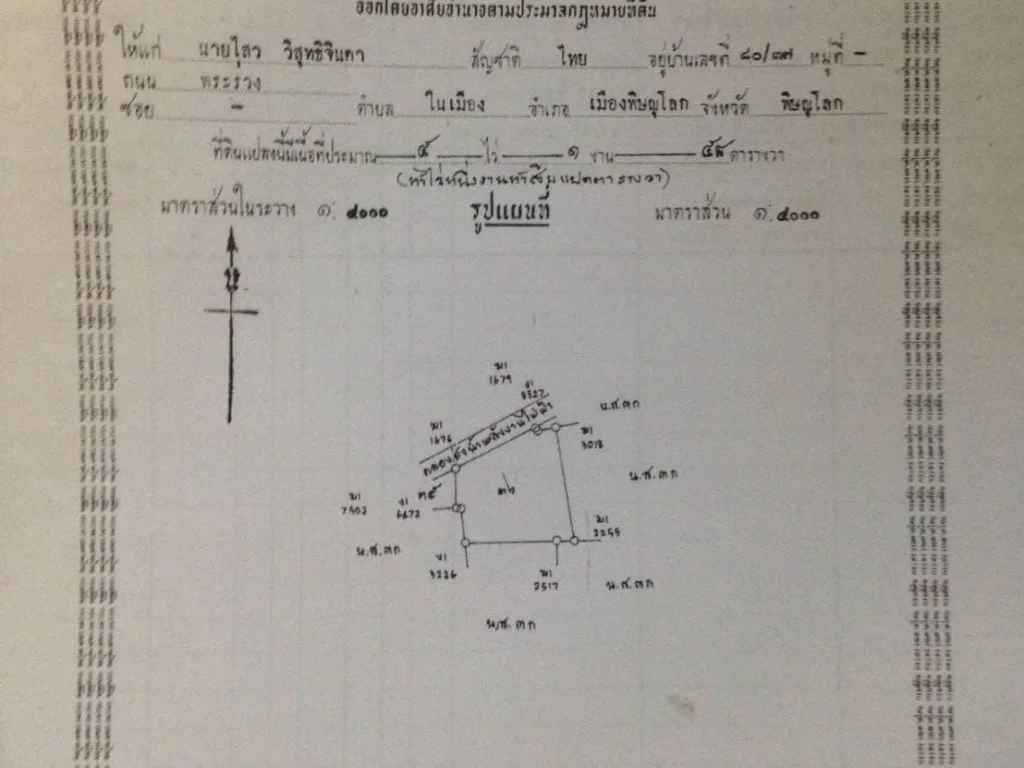 ออกโดยอาศัยอำนาจตามประมวลกฎหมายที่ดิน
ให้แก่ นายไสว วิสุทธิจินดา สัญชาติ ไทย อยู่บ้านเลขที่ ๘๐/๓๗ หมู่ที่ -
ถนน พระร่วง
ซอย - ตำบล ในเมือง อำเภอ เมืองพิษณุโลก จังหวัด พิษณุโลก
ที่ดินแปลงนี้มีเนื้อที่ประมาณ ๕ ไร่ ๑ งาน ๕๘ ตารางวา
(ห้าไร่หนึ่งงานห้าสิบแปดตารางวา)
มาตราส่วนในระวาง ๑: ๔๐๐๐ รูปแผนที่ มาตราส่วน ๑: ๔๐๐๐
น
ฆ1
1679
ง1
8527
น.ส.๓ก
ฆ1
1676
คลองส่งน้ำพลังงานไฟฟ้า
ฆ1
3018
น.ส.๓ก
๓๕
๓๖
ฆ1
7502
ง1
6672
ฆ1
2255
น.ส.๓ก
ง1
3226
ฆ1
2517
น.ส.๓ก
น.ส.๓ก